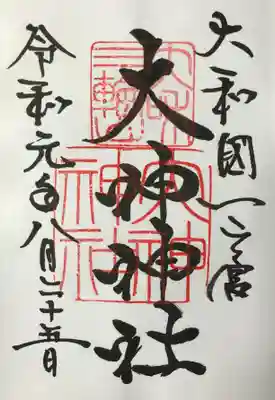 大和國一之宮
大神神社
令和元年八月二十五日